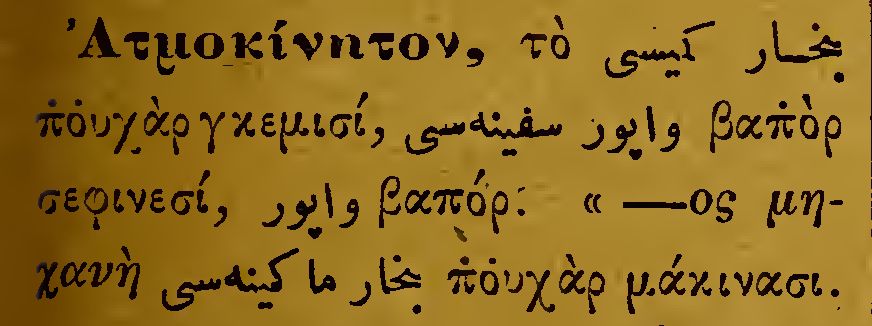 Ἀτμοκίνητον, τὸ بخار كمیسی
π̇ο̇υχὰρ γκεμισί, واپور سفینه‌سی βαπ̇ὸρ
σεφινεσί, واپور βαπ̇όρ: « —ος μη-
χανὴ بخار ماكینه‌سی π̇ο̇υχὰρ μάκινασι.